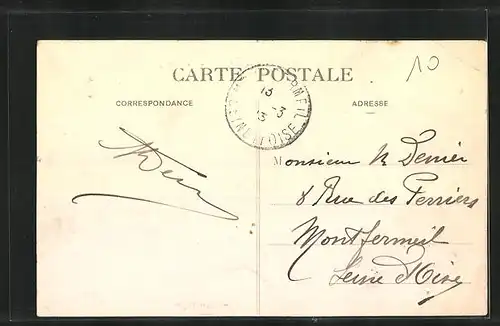 10
CARTE POSTALE
CORRESPONDANCE
ADRESSE
MONTFERMEIL
13 -3
13
SEINE ET OISE
Monsieur R Denier
8 Rue des Perriers
Montfermeil
Seine d'Oise